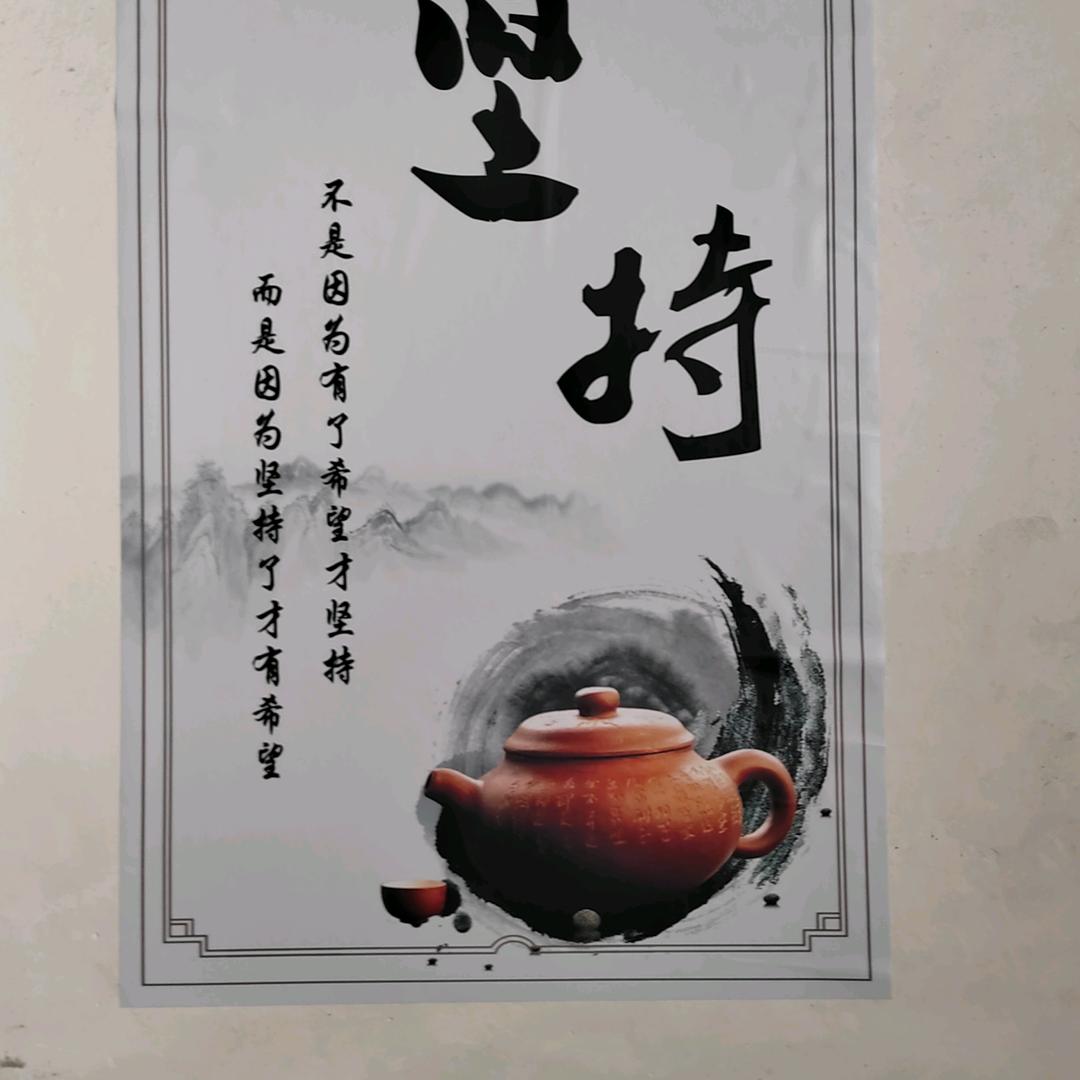 坚
持
不是因为有了希望才坚持
而是因为坚持了才有希望